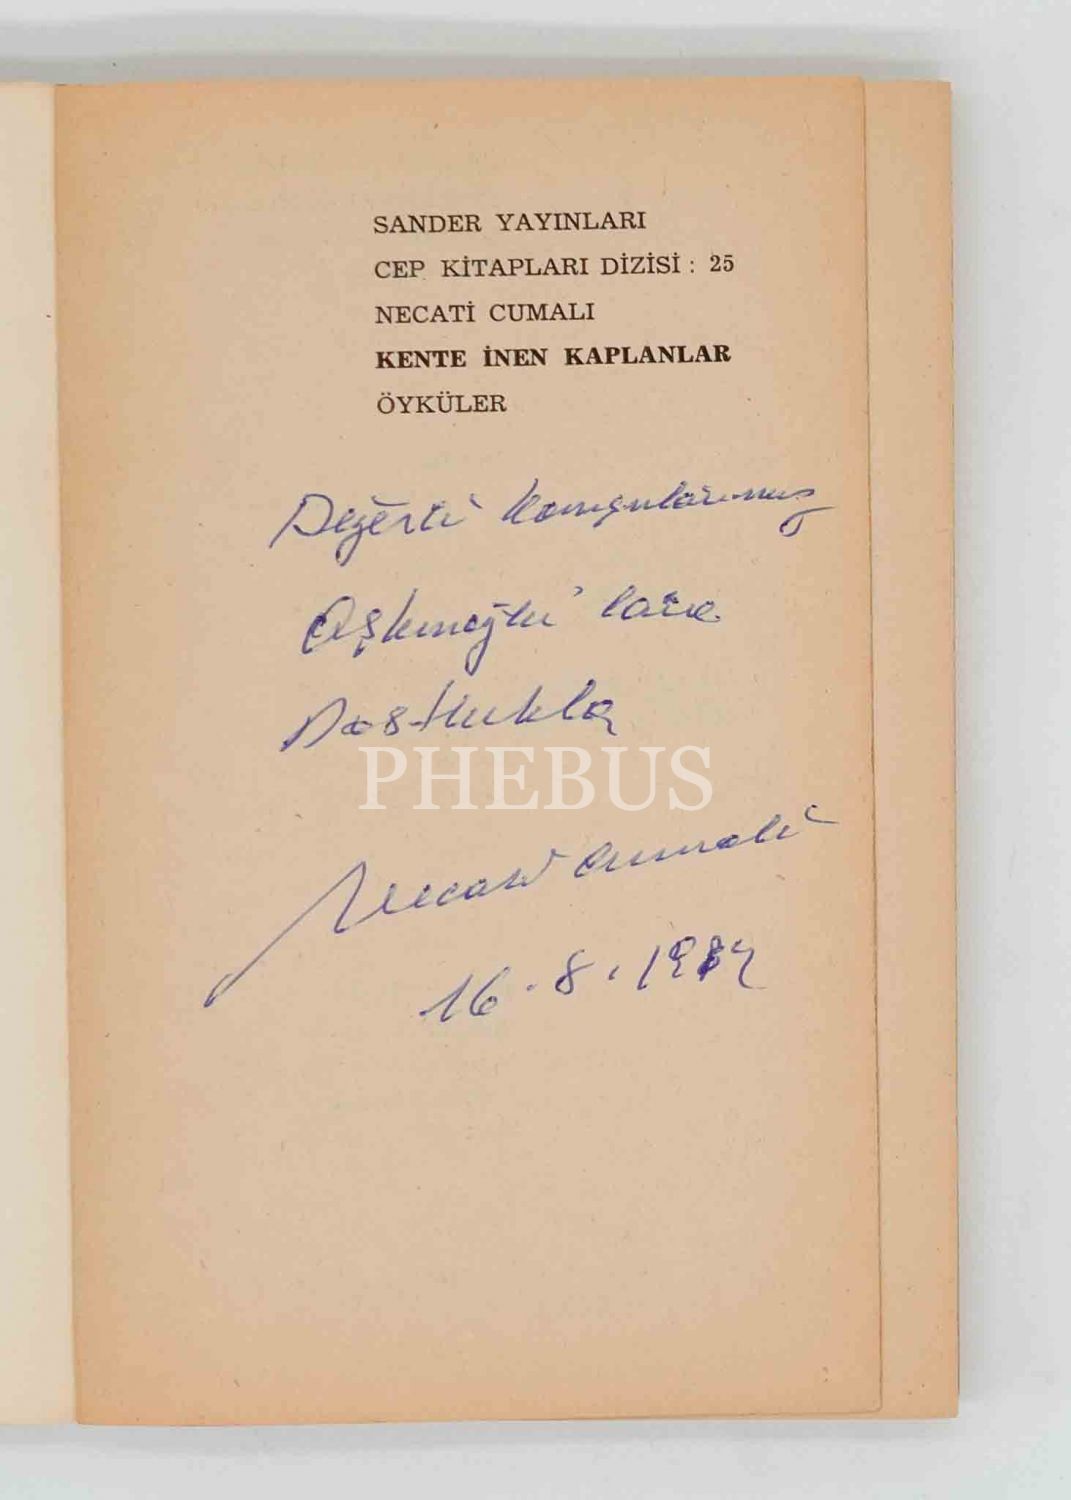 SANDER YAYINLARI
CEP KİTAPLARI DİZİSİ : 25
NECATİ CUMALI
KENTE İNEN KAPLANLAR
ÖYKÜLER
Değerli komşularımız
Aşkınoğlu'lara
Dostlukla
PHEBUS
Necati Cumalı
16.8.1982